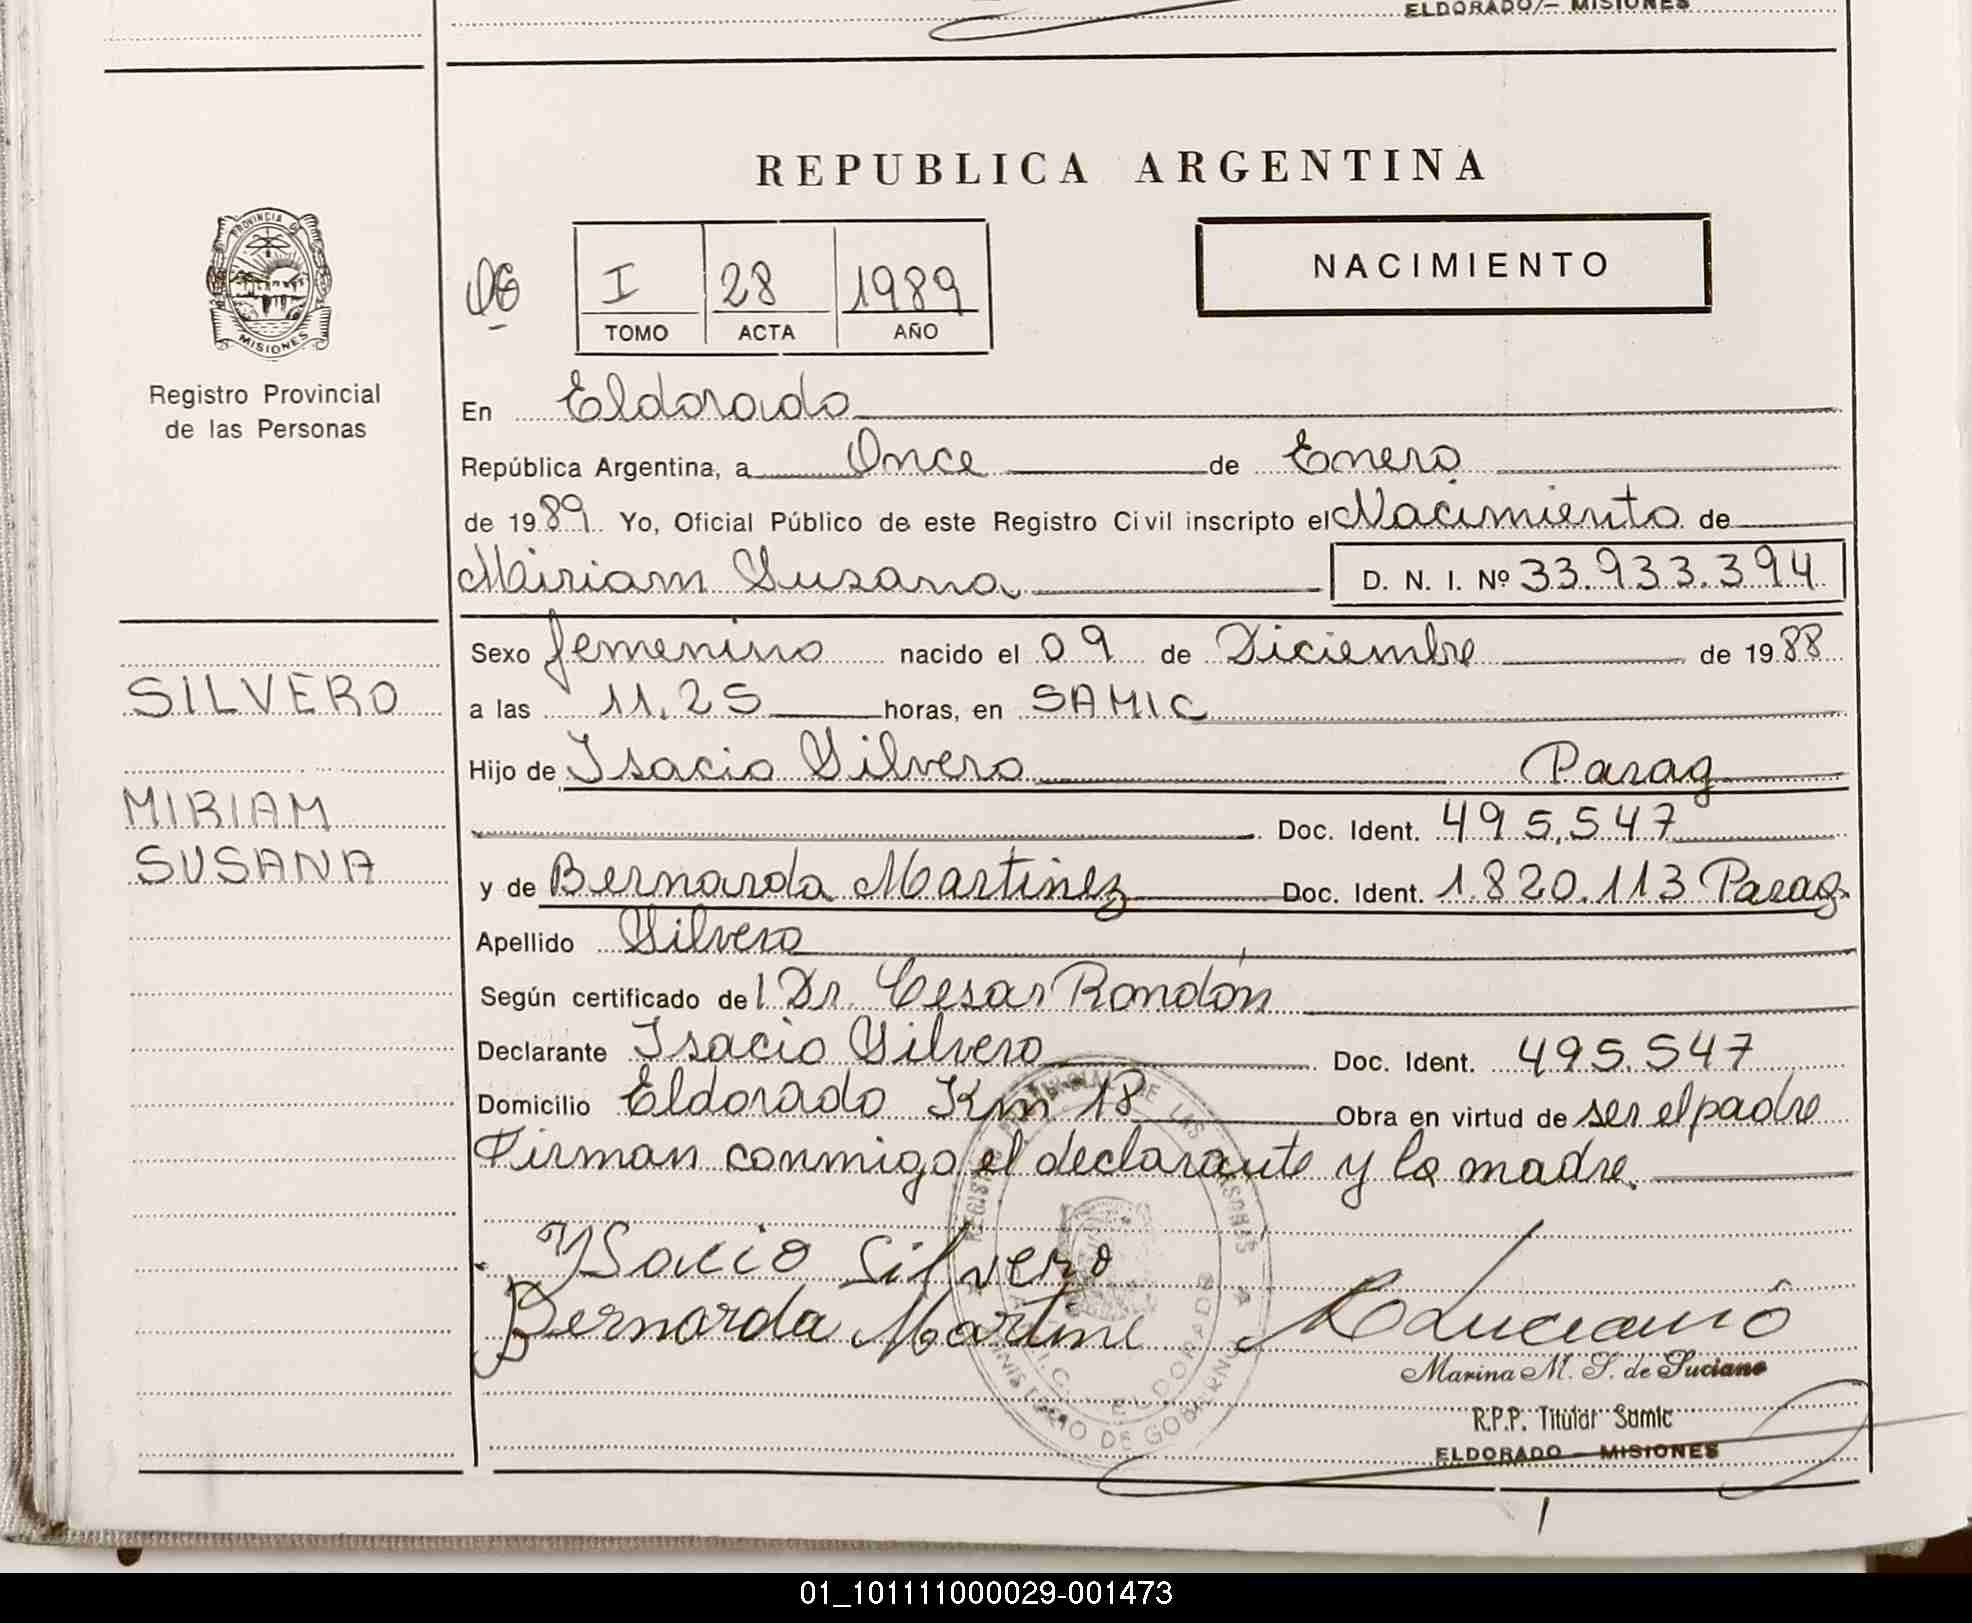 ELDORADO/— MISIONES
REPUBLICA ARGENTINA
PROVINCIA DE
MISIONES
Registro Provincial
de las Personas
06
I 28 1989
TOMO ACTA AÑO
NACIMIENTO
En Eldorado
República Argentina, a Once de Enero
de 1989 Yo, Oficial Público de este Registro Civil inscripto el Nacimiento de
Miriam Susana D. N. I. Nº 33.933.394
Sexo femenino nacido el 09 de Diciembre de 1988
a las 11.25 horas, en SAMIC
Hijo de Isacio Silvero Parag
Doc. Ident. 495.547
y de Bernarda Martinez Doc. Ident. 1.820.113 Parag.
Apellido Silvero
Según certificado del Dr. Cesar Rondón
Declarante Isacio Silvero Doc. Ident. 495.547
Domicilio Eldorado Km 18 Obra en virtud de ser el padre
Firman conmigo el declarante y la madre.
SILVERO
MIRIAM
SUSANA
Ysacio Silvero
Bernarda Martine
Luciano
Marina M. S. de Luciano
R.P.P. Titular Samic
ELDORADO — MISIONES
REGISTRO PROVINCIAL DE LAS PERSONAS
ELDORADO
MINISTERIO DE GOBIERNO
01_101111000029-001473